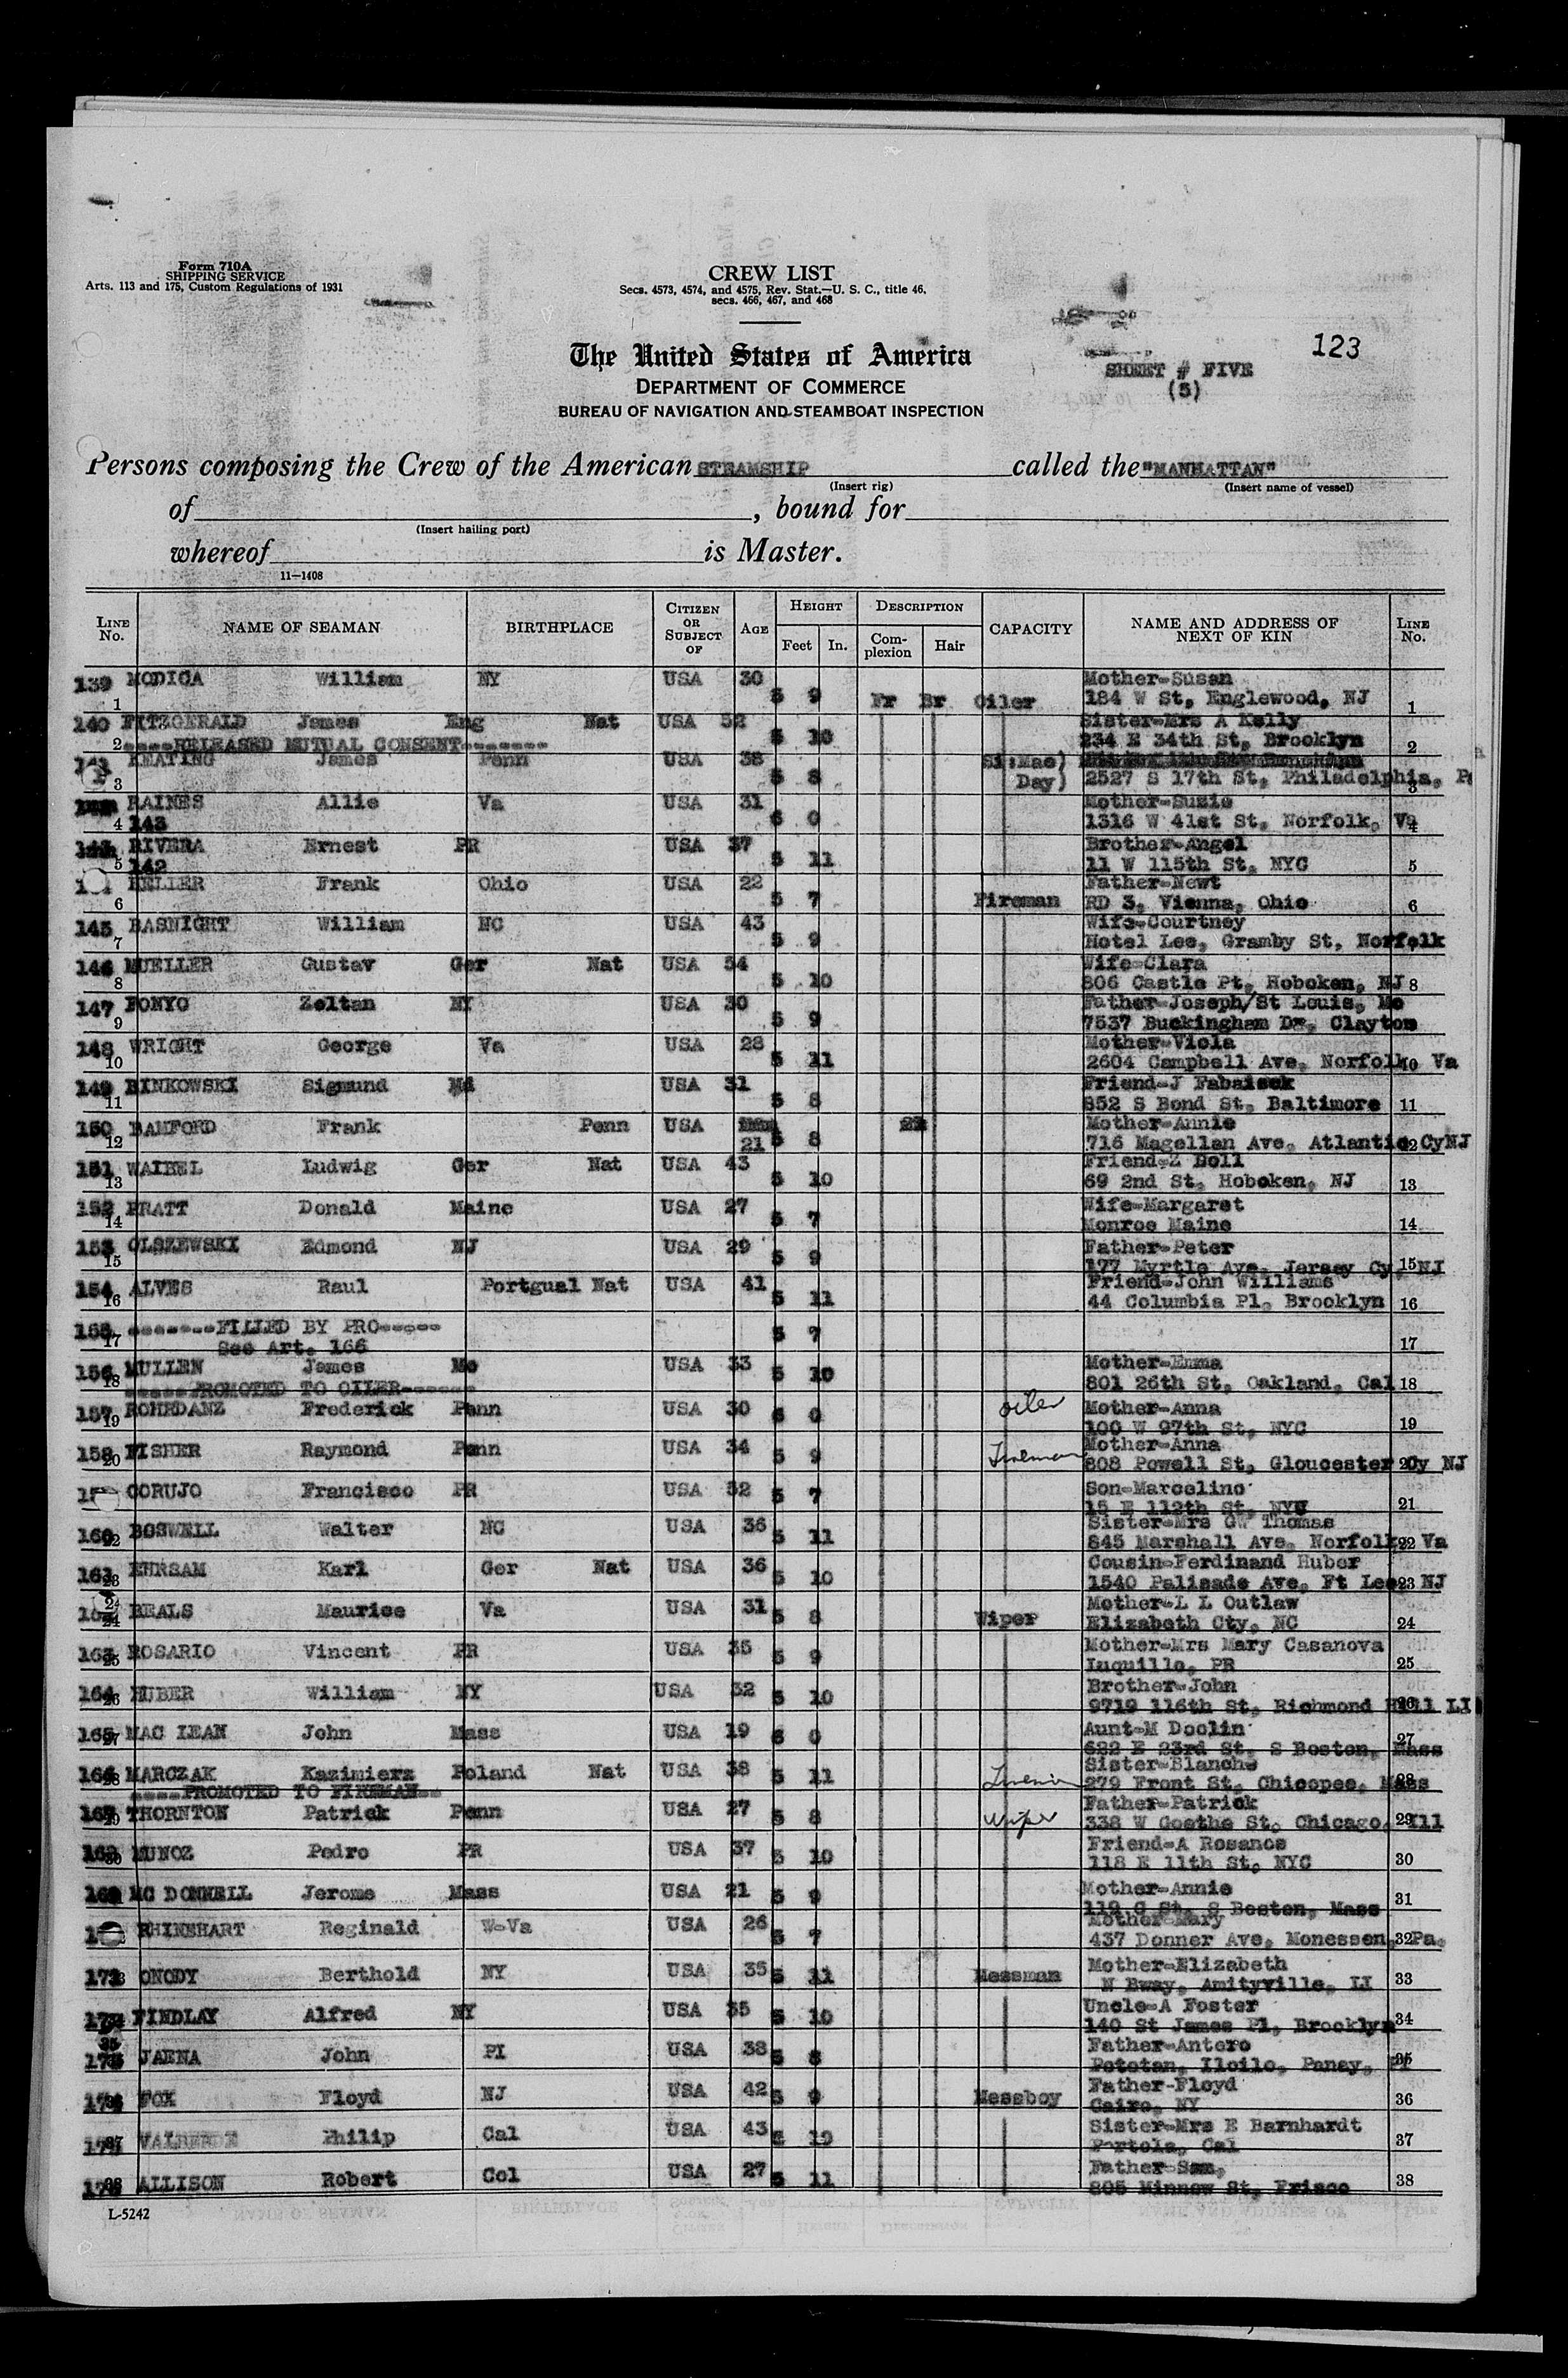 Form 710A
SHIPPING SERVICE
Arts. 113 and 175, Custom Regulations of 1931
CREW LIST
Secs. 4573, 4574, and 4575, Rev. Stat.—U. S. C., title 46,
secs. 466, 467, and 468
123
The United States of America
DEPARTMENT OF COMMERCE
BUREAU OF NAVIGATION AND STEAMBOAT INSPECTION
SHEET # FIVE
(5)
Persons composing the Crew of the American STEAMSHIP called the "MANHATTAN"
(Insert rig) (Insert name of vessel)
of , bound for
(Insert hailing port)
whereof is Master.
11—1408
LINE No. NAME OF SEAMAN BIRTHPLACE CITIZEN OR SUBJECT OF AGE HEIGHT Feet In. DESCRIPTION Complexion Hair CAPACITY NAME AND ADDRESS OF NEXT OF KIN LINE No.
139 MODICA William NY USA 30 Mother-Susan
1 5 9 Fr Br Oiler 184 W St, Englewood, NJ 1
140 FITZGERALD James Eng Nat USA 52 Sister-Mrs A Kelly
2 ----RELEASED MUTUAL CONSENT------- 5 10 234 E 34th St, Brooklyn 2
KEATING James Penn USA 38 Si:Mae)
3 5 8 Day) 2527 S 17th St, Philadelphia, 3
RAINES Allie Va USA 31 Mother-Suzie
4 143 6 0 1316 W 41st St, Norfolk, Va 4
RIVERA Ernest PR USA 37 Brother-Angel
5 142 5 11 11 W 115th St, NYC 5
HELIER Frank Ohio USA 22 Father-Newt
6 5 7 Fireman RD 3, Vienna, Ohio 6
145 BASNIGHT William NC USA 43 Wife-Courtney
7 5 9 Hotel Lee, Granby St, Norfolk
146 MUELLER Gustav Ger Nat USA 54 Wife-Clara
8 5 10 806 Castle Pt, Hoboken, NJ 8
147 FONYO Zoltan NY USA 30 Father-Joseph/St Louis, Mo
9 5 9 7537 Buckingham Dr, Clayton
148 WRIGHT George Va USA 28 Mother-Viola
10 5 11 2604 Campbell Ave, Norfolk, Va 10
149 BINKOWSKI Sigmund Md USA 31 Friend-J Fabaisek
11 5 8 852 S Bond St, Baltimore 11
150 BAMFORD Frank Penn USA Mother-Annie
12 21 5 8 716 Magellan Ave, Atlantic CyNJ 12
151 WAIBEL Ludwig Ger Nat USA 43 Friend-Z Doll
13 5 10 69 2nd St, Hoboken, NJ 13
152 PRATT Donald Maine USA 27 Wife-Margaret
14 5 7 Monroe Maine 14
153 OLSZEWSKI Edmond NJ USA 29 Father-Peter
15 5 9 177 Myrtle Ave, Jersey Cy, NJ 15
154 ALVES Raul Portgual Nat USA 41 Friend-John Williams
16 5 11 44 Columbia Pl, Brooklyn 16
155 -------FILLED BY PRO-----
17 See Art. 166 5 7 17
156 MULLEN James Mo USA 33 Mother-Emma
18 -----PROMOTED TO OILER------ 5 10 801 26th St, Oakland, Cal 18
157 ROHRDANZ Frederick Penn USA 30 Oiler Mother-Anna
19 6 0 100 W 97th St, NYC 19
158 FISHER Raymond Penn USA 34 Fireman Mother-Anna
20 5 9 808 Powell St, Gloucester Cy NJ 20
CORUJO Francisco PR USA 32 Son-Marcelino
5 7 15 E 112th St, NYC 21
160 BOSWELL Walter NC USA 36 Sister-Mrs GW Thomas
22 5 11 845 Marshall Ave, Norfolk, Va 22
161 EHRSAM Karl Ger Nat USA 36 Cousin-Ferdinand Huber
23 5 10 1540 Palisade Ave, Ft Lee, NJ 23
BEALS Maurice Va USA 31 Mother-L L Outlaw
24 5 8 Wiper Elizabeth Cty, NC 24
163 ROSARIO Vincent PR USA 35 Mother-Mrs Mary Casanova
25 5 9 Luquillo, PR 25
164 HUBER William NY USA 32 Brother-John
26 5 10 9719 116th St, Richmond Hill LI 26
165 MAC LEAN John Mass USA 19 Aunt-M Doolin
27 6 0 622 E 23rd St, S Boston, Mass 27
166 MARCZAK Kazimierz Poland Nat USA 38 Sister-Blanche
28 ----PROMOTED TO FIREMAN-- 5 11 Fireman 279 Front St, Chicopee, Mass 28
167 THORNTON Patrick Penn USA 27 Wiper Father-Patrick
29 5 8 338 W Goethe St, Chicago, Ill 29
168 MUNOZ Pedro PR USA 37 Friend-A Rosanos
30 5 10 118 E 11th St, NYC 30
169 MC DONNELL Jerome Mass USA 21 Mother-Annie
5 9 119 C St, S Boston, Mass 31
RHINEHART Reginald W-Va USA 26 Mother-Mary
5 7 437 Donner Ave, Monessen, Pa. 32
ONODY Berthold NY USA 35 Mother-Elizabeth
5 11 Messman N Bway, Amityville, LI 33
FINDLAY Alfred NY USA 35 Uncle-A Foster
5 10 140 St James Pl, Brooklyn 34
JAENA John PI USA 38 Father-Antero
5 8 Pototan, Iloilo, Panay, 35
FOX Floyd NJ USA 42 Father-Floyd
5 9 Messboy Cairo, NY 36
Philip Cal USA 43 Sister-Mrs E Barnhardt
5 10 Portola, Cal 37
ALLISON Robert Col USA 27 Father-Sam,
5 11 805 Minnow St, Frisco 38
L-5242